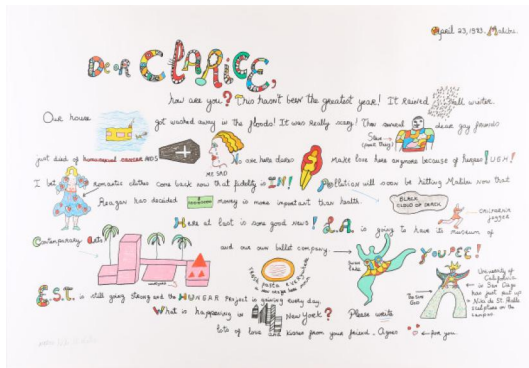 April 23, 1983. Malibu.
Dear CLARICE,
how are you? This hasn't been the greatest year! It rained all winter.
Our house got washed away in the floods! It was really scary! Then several dear gay friends
Steve (poor thing)
just died of AIDS
ME SAD
No one here dares make love here anymore because of herpes! UEH!
I bet romantic clothes come back now that fidelity is IN! Pollution will soon be hitting Malibu now that
Reagan has decided money is more important than health.
BLACK CLOUD OF DEATH
CALIFORNIA jogger
Here at last is some good news! L.A. is going to have its museum of
Contemporary Arts and our own ballet company YOUPEE!
FRESH PASTA EVERYWHERE
E.S.T. is still going strong and the HUNGER Project is growing every day.
University of California in San Diego has just put up Niki de St. Phalle sculpture on the campus
THE SUN GOD
What is happening in NEW YORK? Please write
lots of love kisses from your friend - Agnes
for you.